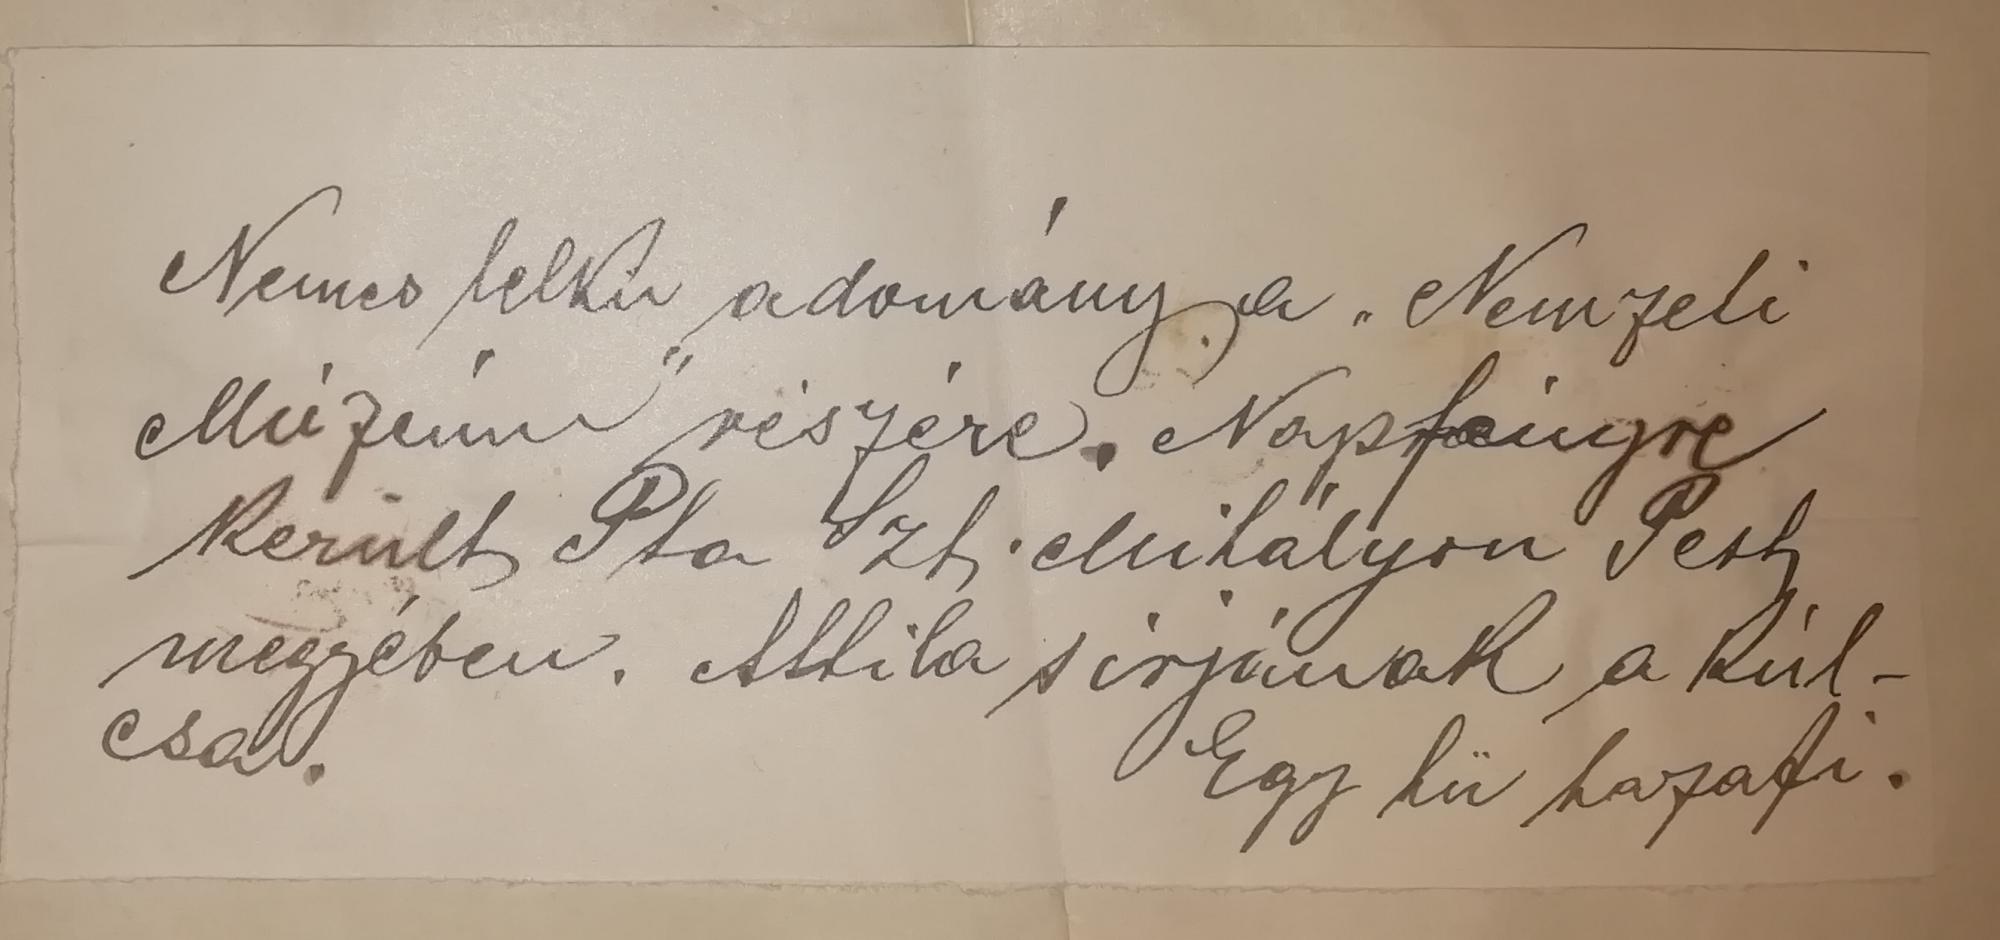 Nemes lelkü adomány a „Nemzeti
Múzeúm" részére. Napfényre
került Pta Szt. Mihályon Pest
megyében. Attila sirjának a kúl-
csa.
Egy hü hazafi.